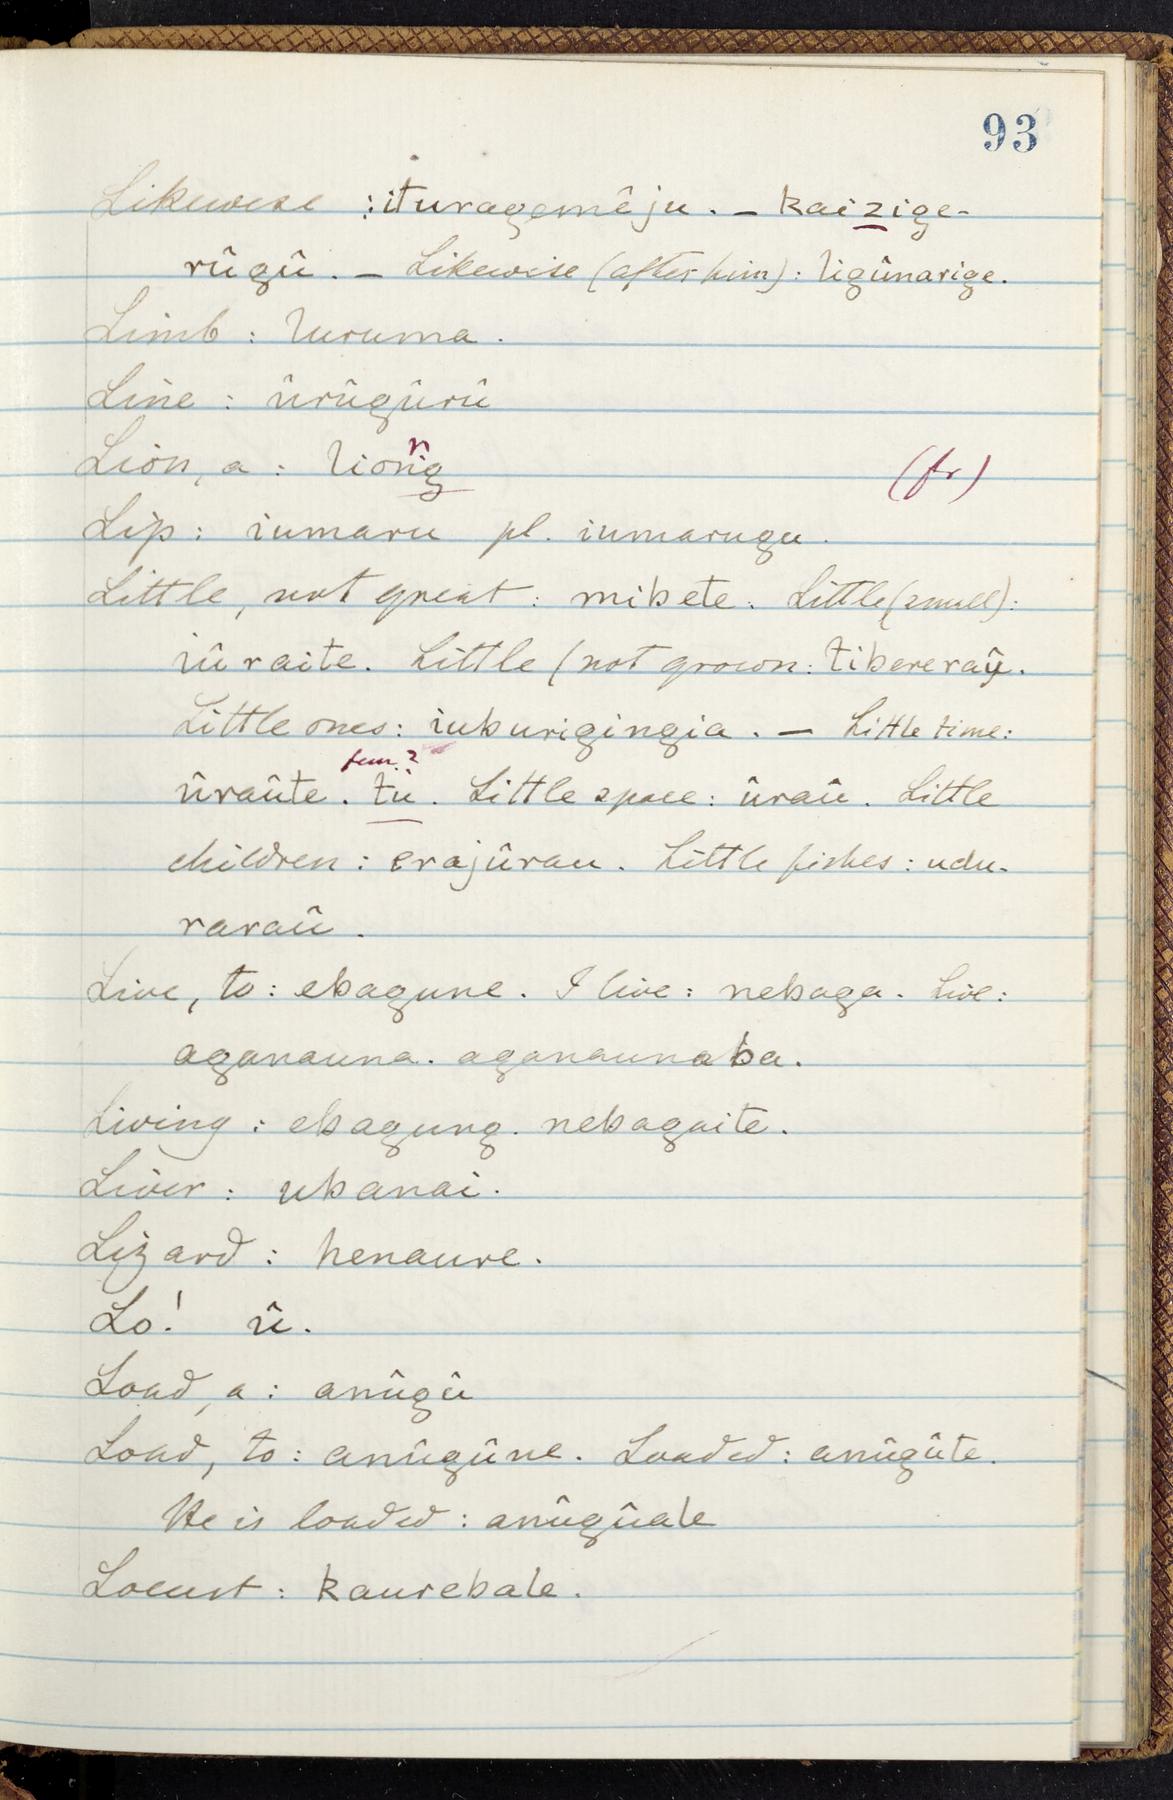 93
Likewise : ituragemêju. – kaizige-
rûgû. – Likewise (after him): ligûnarige.
Limb : luruma.
Line : ûrûgûrû
Lion, a : liong n (fr)
Lip : iumaru pl. iumarugu.
Little, not great : mibete. Little (small):
iûraite. Little (not grown: tibereraû.
Little ones: iuburigingia. – Little time:
fem. ?
ûraûte. tû. Little space: ûraû. Little
children : erajûrau. Little fishes : udu-
raraû.
Live, to : ebagune. I live : nebaga. Live :
aganauna. aganaunaba.
Living : ebagung. nebagaite.
Liver : ubanai.
Lizard : henaure.
Lo! û.
Load, a : anûgû
Load, to : anûgûne. Loaded : anûgûte.
He is loaded : anûgûale
Locust : kaurebale.